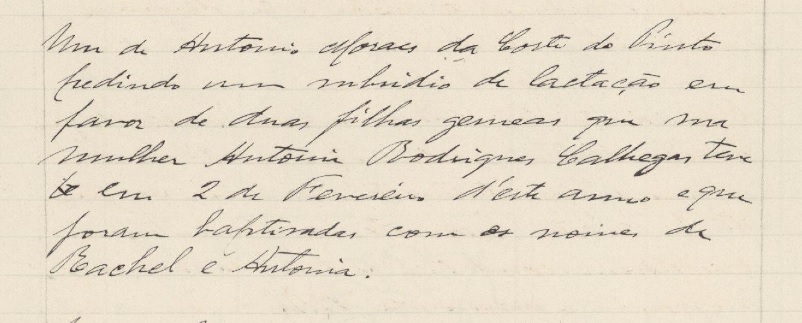 Um de Antonio Moraes da Corte do Pinto
pedindo um subsidio de lactação em
favor de duas filhas gemeas que sua
mulher Antonia Rodrigues Calhegas teve
em 2 de Fevereiro d'este anno e que
foram baptisadas com os nomes de
Rachel e Antonia.